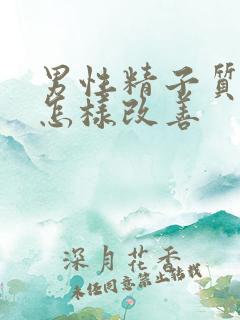 男性精子質
怎樣改善
深月花香
未经同意禁止转载